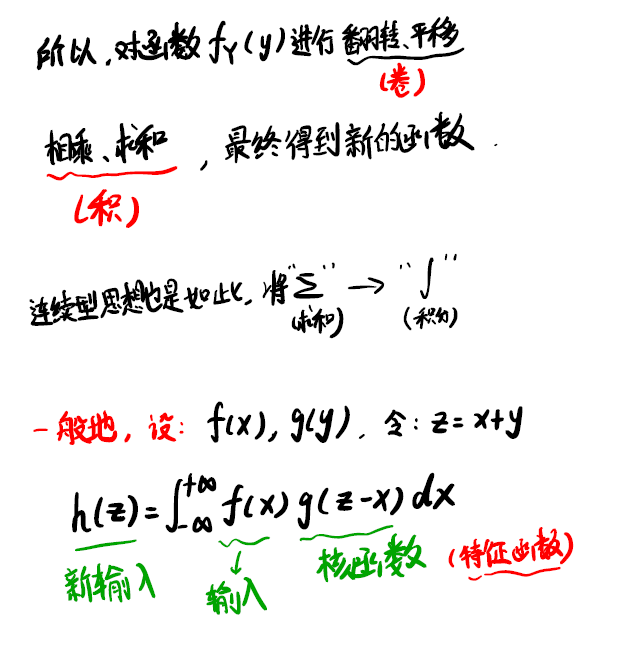 所以,对函数 f_Y(y)进行翻转、平移
(卷)
相乘、求和,最终得到新的函数.
(积)
连续型思想也是如此,将"∑" → "∫"
(求和) (积分)
一般地,设: f(x), g(y), 令: z=x+y
h(z)=∫_{-∞}^{+∞} f(x) g(z-x) dx
新输入 输入 核函数 (特征函数)